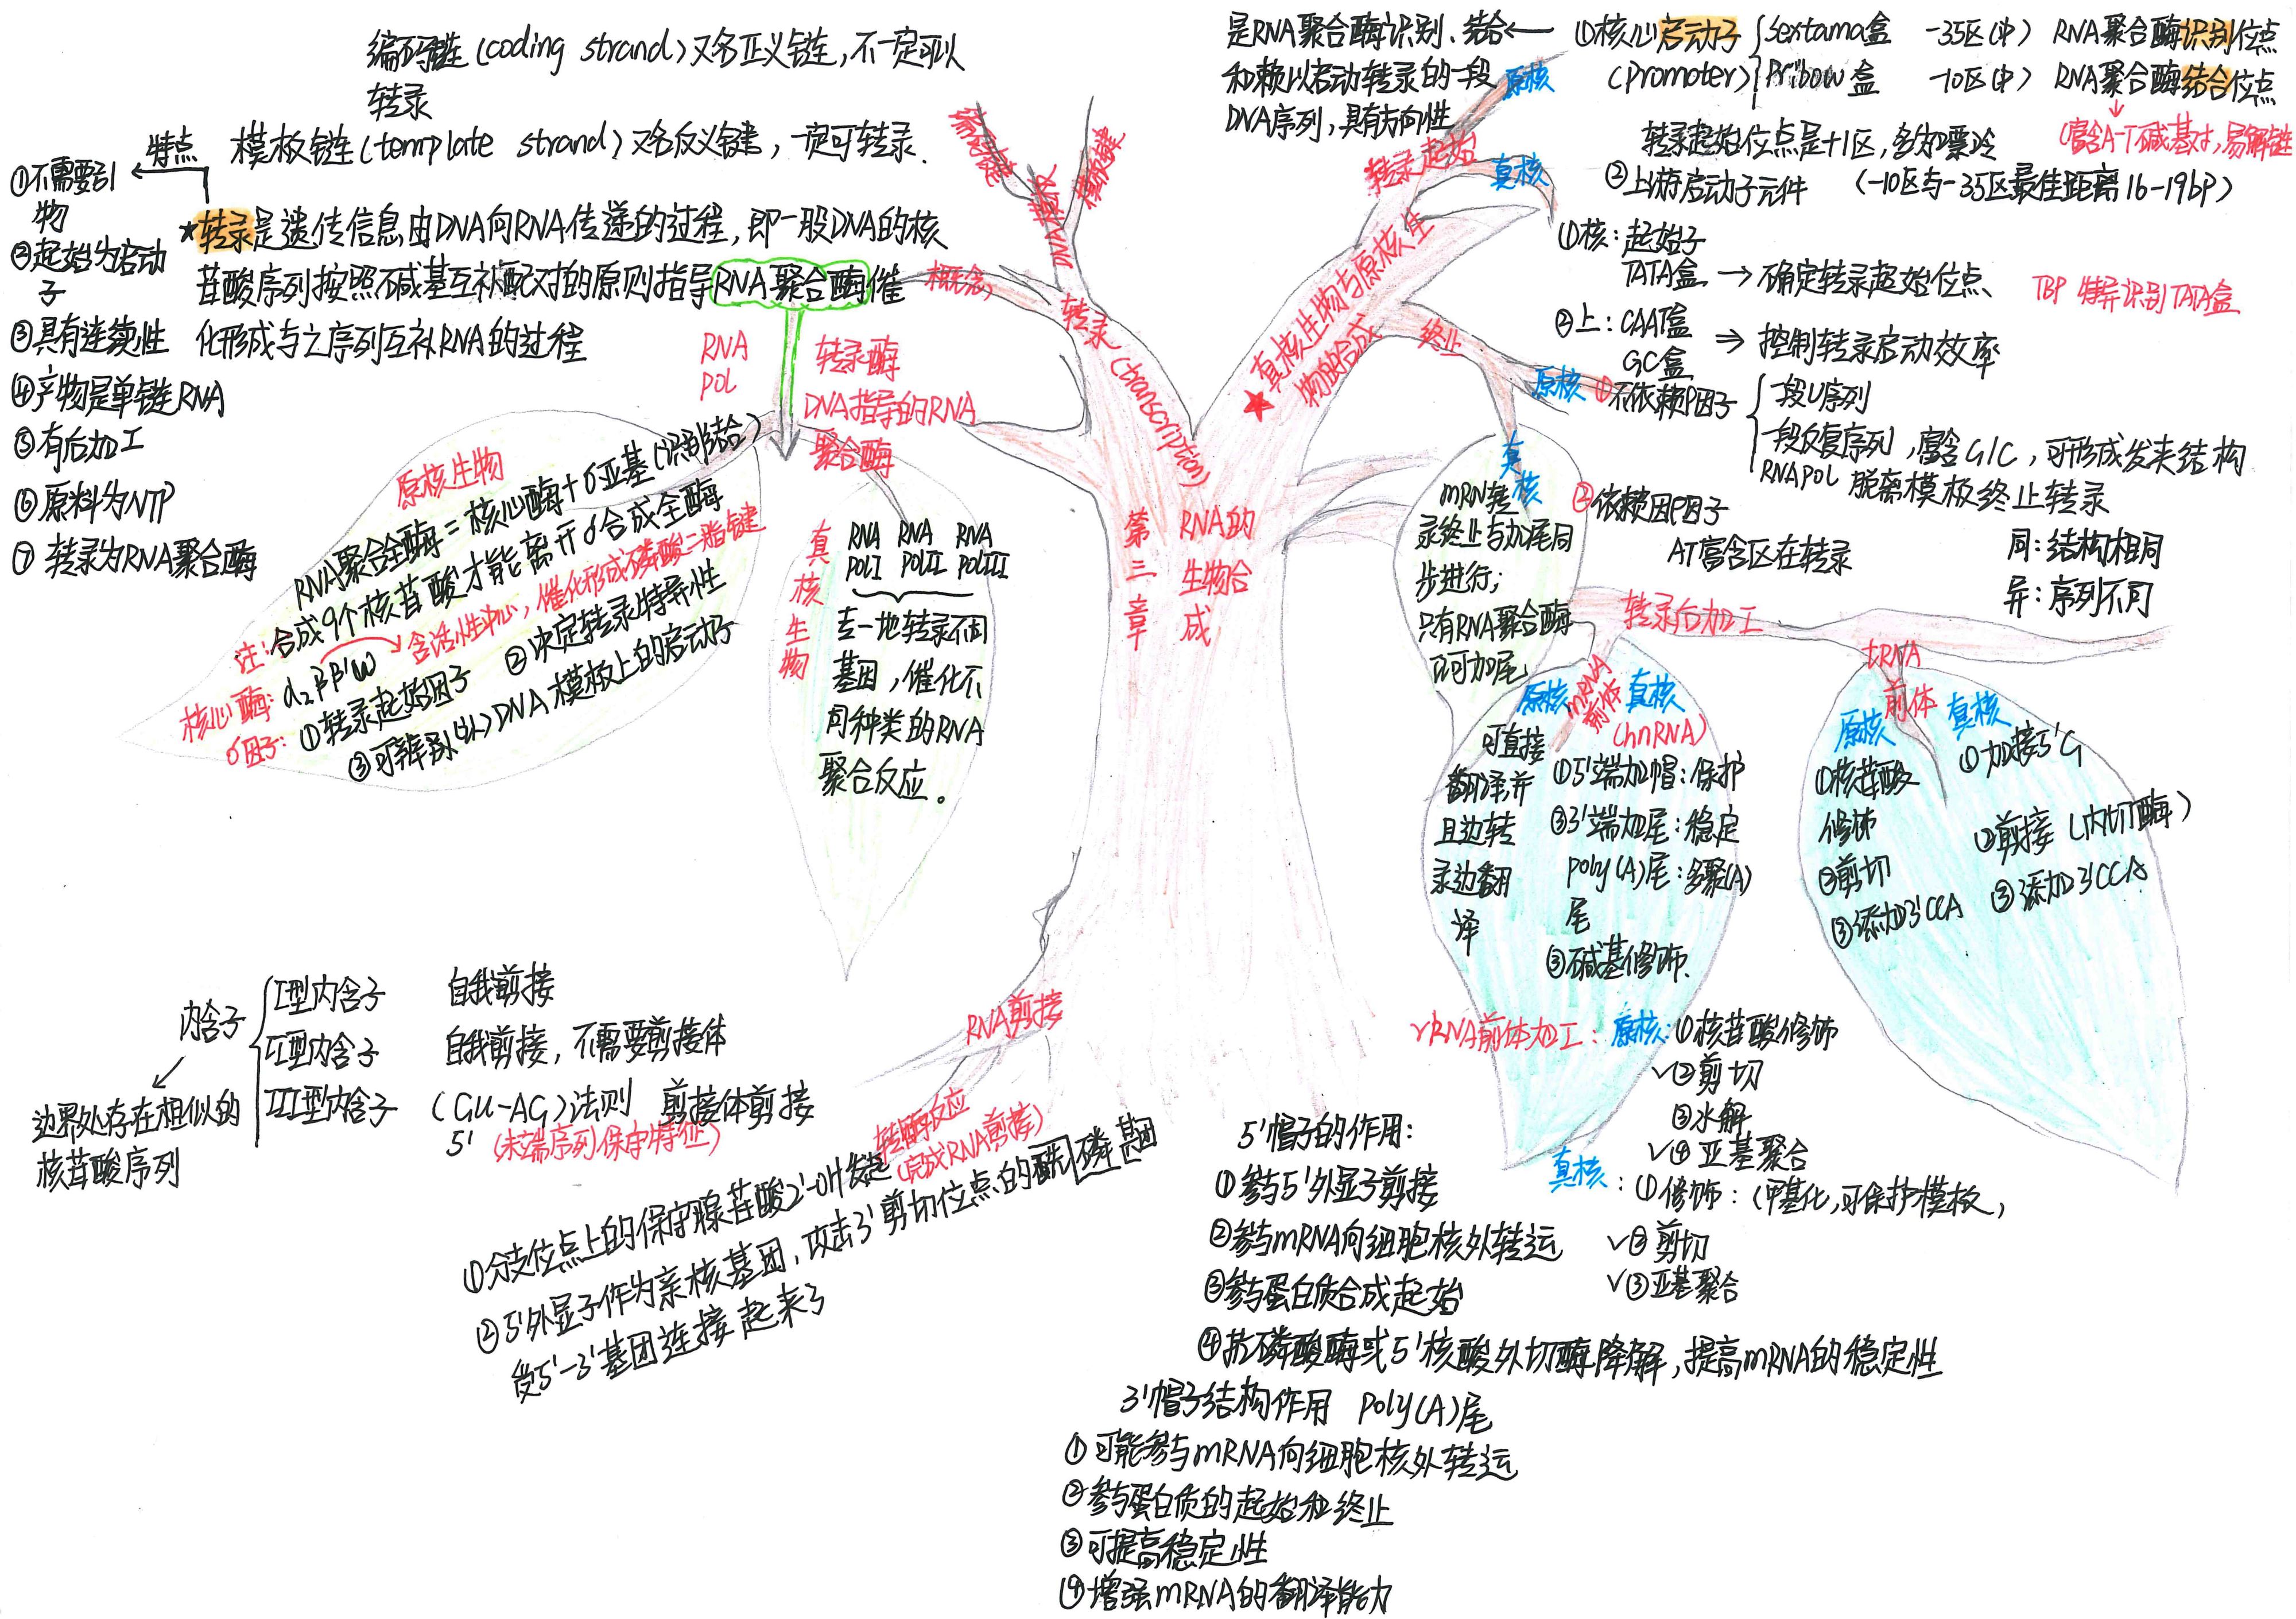 编码链(coding strand)又名正义链，不一定可以
转录
模板链(template strand)又名反义键，一定可转录.
特点
①不需要引
物
②起始为启动
子
③具有连续性
④产物是单链RNA
⑤有后加工
⑥原料为NTP
⑦转录为RNA聚合酶
★转录是遗传信息由DNA向RNA传递的过程，即一股DNA的核
苷酸序列按照碱基互补配对的原则指导RNA聚合酶催
化形成与之序列互补RNA的过程
概念
DNA模板
编码键
模板键
转录(transcription)
RNA
POL
转录酶
DNA指导的RNA
聚合酶
原核生物
RNA聚合全酶=核心酶+σ亚基(识别结合)
注:合成9个核苷酸才能离开σ合成全酶
核心酶:α₂ββ'ω
含活性中心，催化形成磷酸二酯键
σ因子:①转录起始因子 ②决定转录特异性
③可辨别DNA模板上的启动子
真核生物
RNA POLI RNA POLII RNA POLIII
专一地转录不同
基因，催化不
同种类的RNA
聚合反应。
第三章
RNA的
生物合
成
★真核生物与原核生
物的合成
转录起始
原核
是RNA聚合酶识别、结合
和赖以启动转录的一段
DNA序列，具有方向性
①核心启动子
(Promoter)
Sextama盒 -35区(中) RNA聚合酶识别位点
Pribow盒 -10区(中) RNA聚合酶结合位点
(富含A-T碱基对，易解链
转录起始位点是+1区，多为嘌呤
②上游启动子元件 (-10区与-35区最佳距离16-19bp)
真核
①核:起始子
TATA盒→确定转录起始位点 TBP 特异识别TATA盒
②上:CAAT盒
GC盒
⇒控制转录启动效率
终止
原核
①不依赖ρ因子
一段U序列
一段反复序列，富含G/C，可形成发夹结构
RNAPOL 脱离模板终止转录
②依赖因ρ因子
AT富含区在转录
同:结构相同
异:序列不同
真核
mRN转
录终止与加尾同
步进行;
只有RNA聚合酶
可加尾
转录后加工
mRNA前体
原核
可直接
翻译并
且边转
录边翻
译
真核
(hnRNA)
①5'端加帽:保护
②3'端加尾:稳定
Poly(A)尾:多聚(A)
尾
③碱基修饰.
tRNA
前体
原核
①核苷酸
修饰
②剪切
③添加3'CCA
真核
①加接5'G
②剪接(内切酶)
③添加3'CCA
rRNA前体加工:
原核:①核苷酸修饰
√②剪切
③水解
√④亚基聚合
真核:①修饰:(甲基化,可保护模板,
√②剪切
√③亚基聚合
RNA剪接
内含子
I型内含子 自我剪接
II型内含子 自我剪接，不需要剪接体
III型内含子 (GU-AG)法则 剪接体剪接
5' (末端序列保守特征)
边界处存在相似的
核苷酸序列
转酯反应
(完成RNA剪接)
①分支位点上的保守腺苷酸2'-OH发起
②5'外显子作为亲核基团，攻击3'剪切位点的磷基团
使5'-3'基团连接起来了
5'帽子的作用:
①参与5'外显子剪接
②参与mRNA向细胞核外转运
③参与蛋白质合成起始
④抗磷酸酶或5'核酸外切酶降解，提高mRNA的稳定性
3'帽子结构作用 Poly(A)尾
①可能参与mRNA向细胞核外转运
②参与蛋白质的起始和终止
③可提高稳定性
④增强mRNA的翻译能力